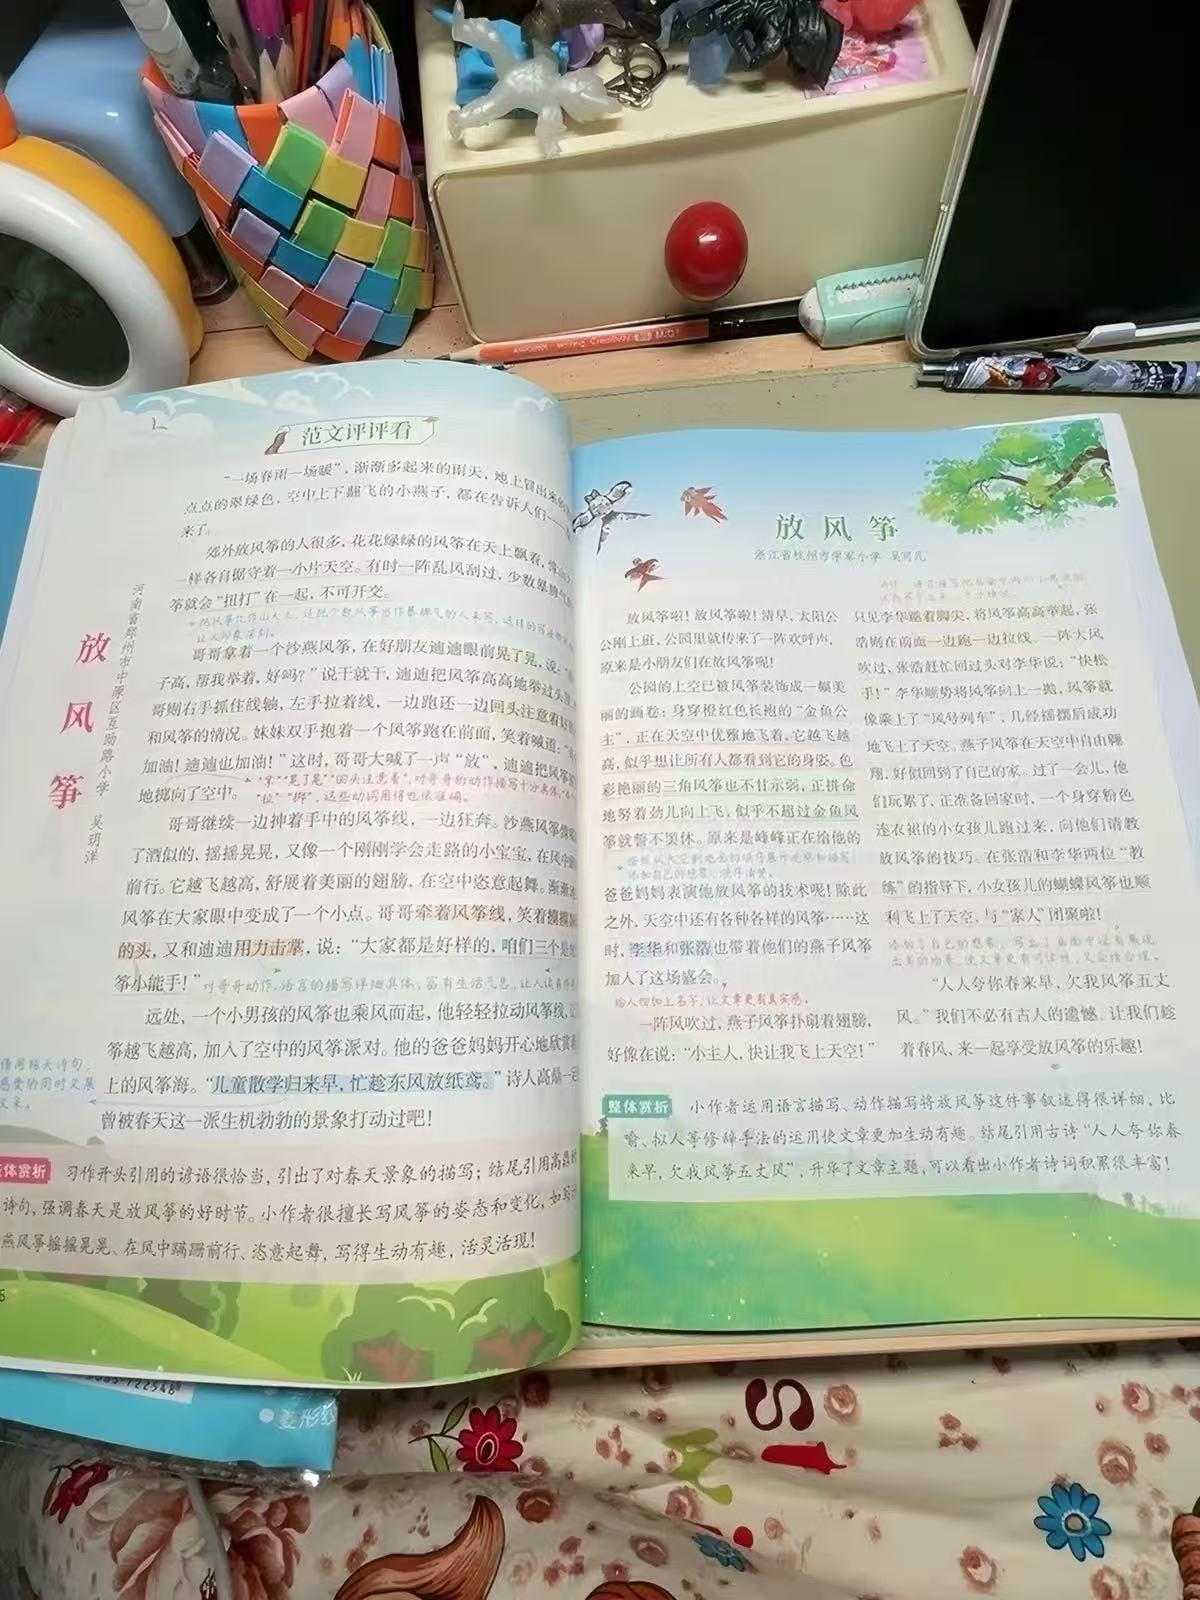 范文评评看
“一场春雨一场暖”，渐渐多起来的雨天，地上冒出来的
点点的翠绿色，空中上下翻飞的小燕子，都在告诉人们
来了。
郊外放风筝的人很多，花花绿绿的风筝在天上飘着，
一样各自据守着一小片天空。有时一阵乱风刮过，少数暴脾气
筝就会“扭打”在一起，不可开交。
放风筝
河南省郑州市中原区互助路小学 吴玥洋
哥哥拿着一个沙燕风筝，在好朋友迪迪眼前晃了晃，说：
子高，帮我举着，好吗？”说干就干，迪迪把风筝高高地举过头
哥则右手抓住线轴，左手拉着线，一边跑还一边回头注意着
和风筝的情况。妹妹双手抱着一个风筝跑在前面，笑着喊道：
加油！迪迪也加油！”这时，哥哥大喊了一声“放”，迪迪把风筝
地掷向了空中。
“拿”“晃了晃”“回头注意着”，对哥哥的动作描写十分具体，
“拉”“掷”，这些动词用得也很准确。
哥哥继续一边抻着手中的风筝线，一边狂奔。沙燕风筝
了酒似的，摇摇晃晃，又像一个刚刚学会走路的小宝宝，在风中
前行。它越飞越高，舒展着美丽的翅膀，在空中恣意起舞。渐渐
风筝在大家眼中变成了一个小点。哥哥牵着风筝线，笑着摸摸
的头，又和迪迪用力击掌，说：“大家都是好样的，咱们三个是
筝小能手！”
对哥哥动作、语言的描写详细具体，富有生活气息，让人读
远处，一个小男孩的风筝也乘风而起，他轻轻拉动风筝线，
筝越飞越高，加入了空中的风筝派对。他的爸爸妈妈开心地欣赏
上的风筝海。“儿童散学归来早，忙趁东风放纸鸢。”诗人高鼎一
曾被春天这一派生机勃勃的景象打动过吧！
体赏析 习作开头引用的谚语很恰当，引出了对春天景象的描写；结尾引用高鼎的
诗句，强调春天是放风筝的好时节。小作者很擅长写风筝的姿态和变化，如写沙
燕风筝摇摇晃晃、在风中蹒跚前行、恣意起舞，写得生动有趣，活灵活现！
放风筝
浙江省杭州市学军小学
放风筝啦！放风筝啦！清早，太阳公
公刚上班，公园里就传来了一阵欢呼声，
原来是小朋友们在放风筝呢！
公园的上空已被风筝装饰成一幅美
丽的画卷：身穿橙红色长袍的“金鱼公
主”，正在天空中优雅地飞着，它越飞越
高，似乎想让所有人都看到它的身姿。色
彩艳丽的三角风筝也不甘示弱，正拼命
地努着劲儿向上飞，似乎不超过金鱼风
筝就誓不罢休。原来是峰峰正在给他的
爸爸妈妈表演他放风筝的技术呢！除此
之外，天空中还有各种各样的风筝……这
时，李华和张浩也带着他们的燕子风筝
加入了这场盛会。
给人物加上名字，让文章更有真实感。
一阵风吹过，燕子风筝扑扇着翅膀，
好像在说：“小主人，快让我飞上天空！”
只见李华踮着脚尖，将风筝高高举起，张
浩则在前面一边跑一边拉线。一阵大风
吹过，张浩赶忙回过头对李华说：“快松
手！”李华顺势将风筝向上一抛，风筝就
像乘上了“风号列车”，几经摇摆后成功
地飞上了天空。燕子风筝在天空中自由翱
翔，好似回到了自己的家。过了一会儿，他
们玩累了，正准备回家时，一个身穿粉色
连衣裙的小女孩儿跑过来，向他们请教
放风筝的技巧。在张浩和李华两位“教
练”的指导下，小女孩儿的蝴蝶风筝也顺
利飞上了天空，与“家人”团聚啦！
“人人夸你春来早，欠我风筝五丈
风。”我们不必有古人的遗憾。让我们趁
着春风，来一起享受放风筝的乐趣！
整体赏析 小作者运用语言描写、动作描写将放风筝这件事叙述得很详细，比
喻、拟人等修辞手法的运用使文章更加生动有趣。结尾引用古诗“人人夸你春
来早，欠我风筝五丈风”，升华了文章主题，可以看出小作者诗词积累很丰富！